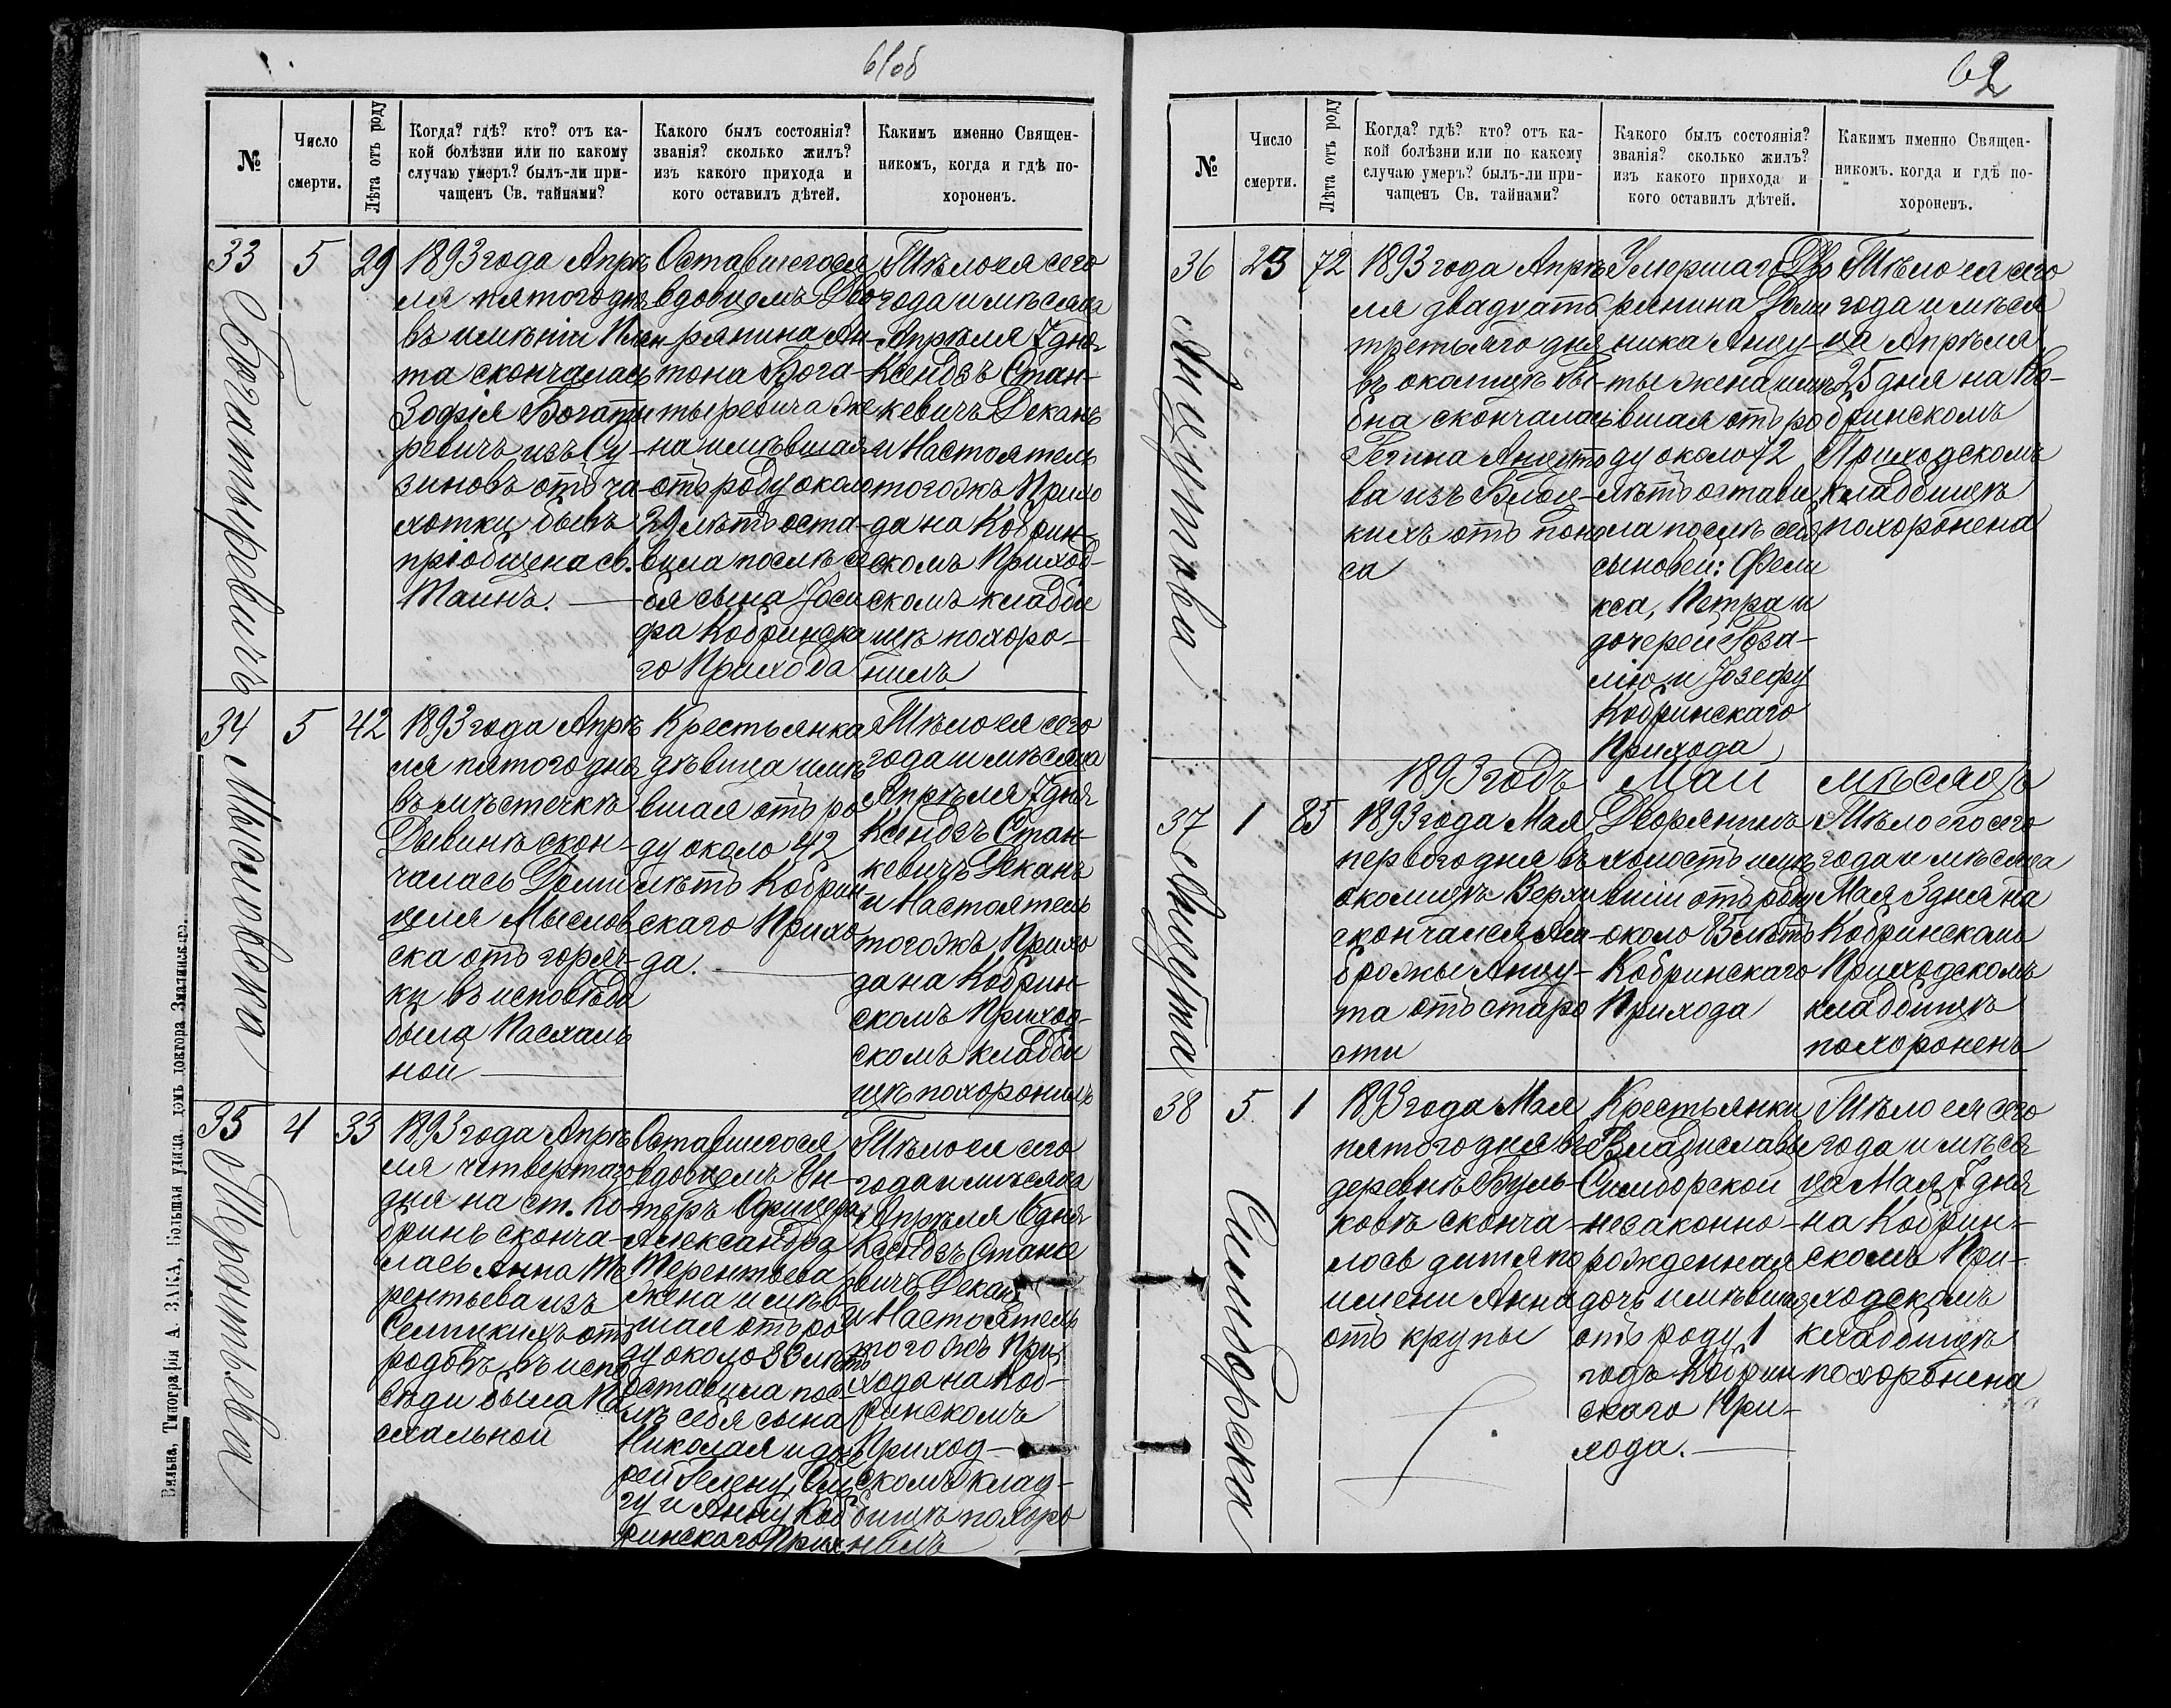 61об
№
Число
смерти.
Лѣта отъ роду
Когда? гдѣ? кто? отъ ка-
кой болѣзни или по какому
случаю умеръ? былъ-ли при-
чащенъ Св. тайнами?
Какого былъ состоянія?
званія? сколько жилъ?
изъ какого прихода и
кого оставилъ дѣтей.
Какимъ именно Священ-
никомъ, когда и гдѣ по-
хороненъ.
33
Богатыревичъ
5
29
1893 года Апрѣ
ля пятого дня
въ имѣніи
та скончалась
Зофія Богаты
ревичъ изъ Су-
зиновъ отъ ча-
хотки бывъ
пріобщена св.
Таинъ.
Оставшегося
вдовцомъ Дво
рянина Ан-
тона Бога-
тыревича же
на имѣвшая
отъ роду около
29 лѣтъ оста-
вила послѣ се
бя сына Іоси
фа Кобринска
го Прихода
Тѣло ея сего
года и мѣсяца
Апрѣля 7 дня
Ксендзъ Стан-
кевичъ Деканъ
и Настоятель
тогожъ Прихо
да на Кобрин-
скомъ Приход-
скомъ кладби
щѣ похоро-
нилъ
34
Мысловска
5
42
1893 года Апрѣ
ля пятого дня
въ мѣстечкѣ
Дывинѣ скон-
чалась Доми
целя Мыслов
ска отъ горяч-
ки въ исповѣди
была Пасхаль
ной
Крестьянка
дѣвица имѣ
вшая отъ ро
ду около 42
лѣтъ Кобрин
скаго Прихо
да.
Тѣло ея сего
года и мѣсяца
Апрѣля 7 дня
Ксендзъ Стан-
кевичъ Деканъ
и Настоятель
тогожъ Прихо
да на Кобрин-
скомъ Приход-
скомъ кладби
щѣ похоронилъ
35
Терентьева
4
33
1893 года Апрѣ
ля четвертаго
дня на ст. Ко-
бринъ сконча-
лась Анна Те
рентьева изъ
Селицкихъ отъ
родовъ въ испо
вѣди была Па
схальной
Оставшегося
вдовцемъ Ун-
теръ Офицера
Александра
Терентьева
жена имѣв-
шая отъ ро
ду около 33 лѣтъ
оставила пос-
лѣ себя сына
Николая и доче
рей Елену, Оль
гу и Анну Коб
ринского Прих
Тѣло ея сего
года и мѣсяца
Апрѣля 6 дня
Ксендзъ Станке
вичъ Деканъ
и Настоятель
того жъ При
хода на Коб-
ринскомъ
Приход-
скомъ клад-
бищѣ похоро
нилъ
Вильна, Типографія А. ЗАКА, Большая улица, домъ доктора
62
№
Число
смерти.
Лѣта отъ роду
Когда? гдѣ? кто? отъ ка-
кой болѣзни или по какому
случаю умеръ? былъ-ли при-
чащенъ Св. тайнами?
Какого былъ состоянія?
званія? сколько жилъ?
изъ какого прихода и
кого оставилъ дѣтей.
Какимъ именно Священ-
никомъ. когда и гдѣ по-
хороненъ.
36
Анцутова
23
72
1893 года Апрѣ
ля двадцать
третьяго дня
въ околицѣ
скончалась
Регина Анцуто
ва изъ
кихъ отъ поно
са
Умершаго Дво
рянина Доми
ника Анцу-
ты жена имѣ
вшая отъ ро
ду около 72
лѣтъ остави
ла послѣ себя
сыновей: Фели
кса, Петра и
дочерей Роза-
лію и Іозефу
Кобринскаго
Прихода
Тѣло ея сего
года и мѣся
ца Апрѣля
25 дня на Ко-
бринскомъ
Приходскомъ
кладбищѣ
похоронена
1893 годъ Май мѣсяцъ
37
Анцута
1
85
1893 года Мая
первого дня въ
околицѣ Верхи
скончался Ам-
брожы Анцу-
та отъ старо
сти
Дворянинъ
холостъ имѣ
вшій отъ роду
около 85 лѣтъ
Кобринскаго
Прихода
Тѣло его сего
года и мѣсяца
Мая 3 дня на
Кобринскомъ
Приходскомъ
кладбищѣ
похороненъ
38
Симборска
5
1
1893 года Мая
пятого дня въ
деревнѣ Буль-
ковѣ сконча-
лось дитя по
имени Анна
отъ крупы
Крестьянки
Владиславы
Симборской
незаконно-
рожденная
дочь имѣвшая
отъ роду 1
годъ Кобрин
скаго При-
хода.
Тѣло ея сего
года и мѣся
ца Мая 7 дня
на Кобрин-
скомъ При-
ходскомъ
кладбищѣ
похоронена